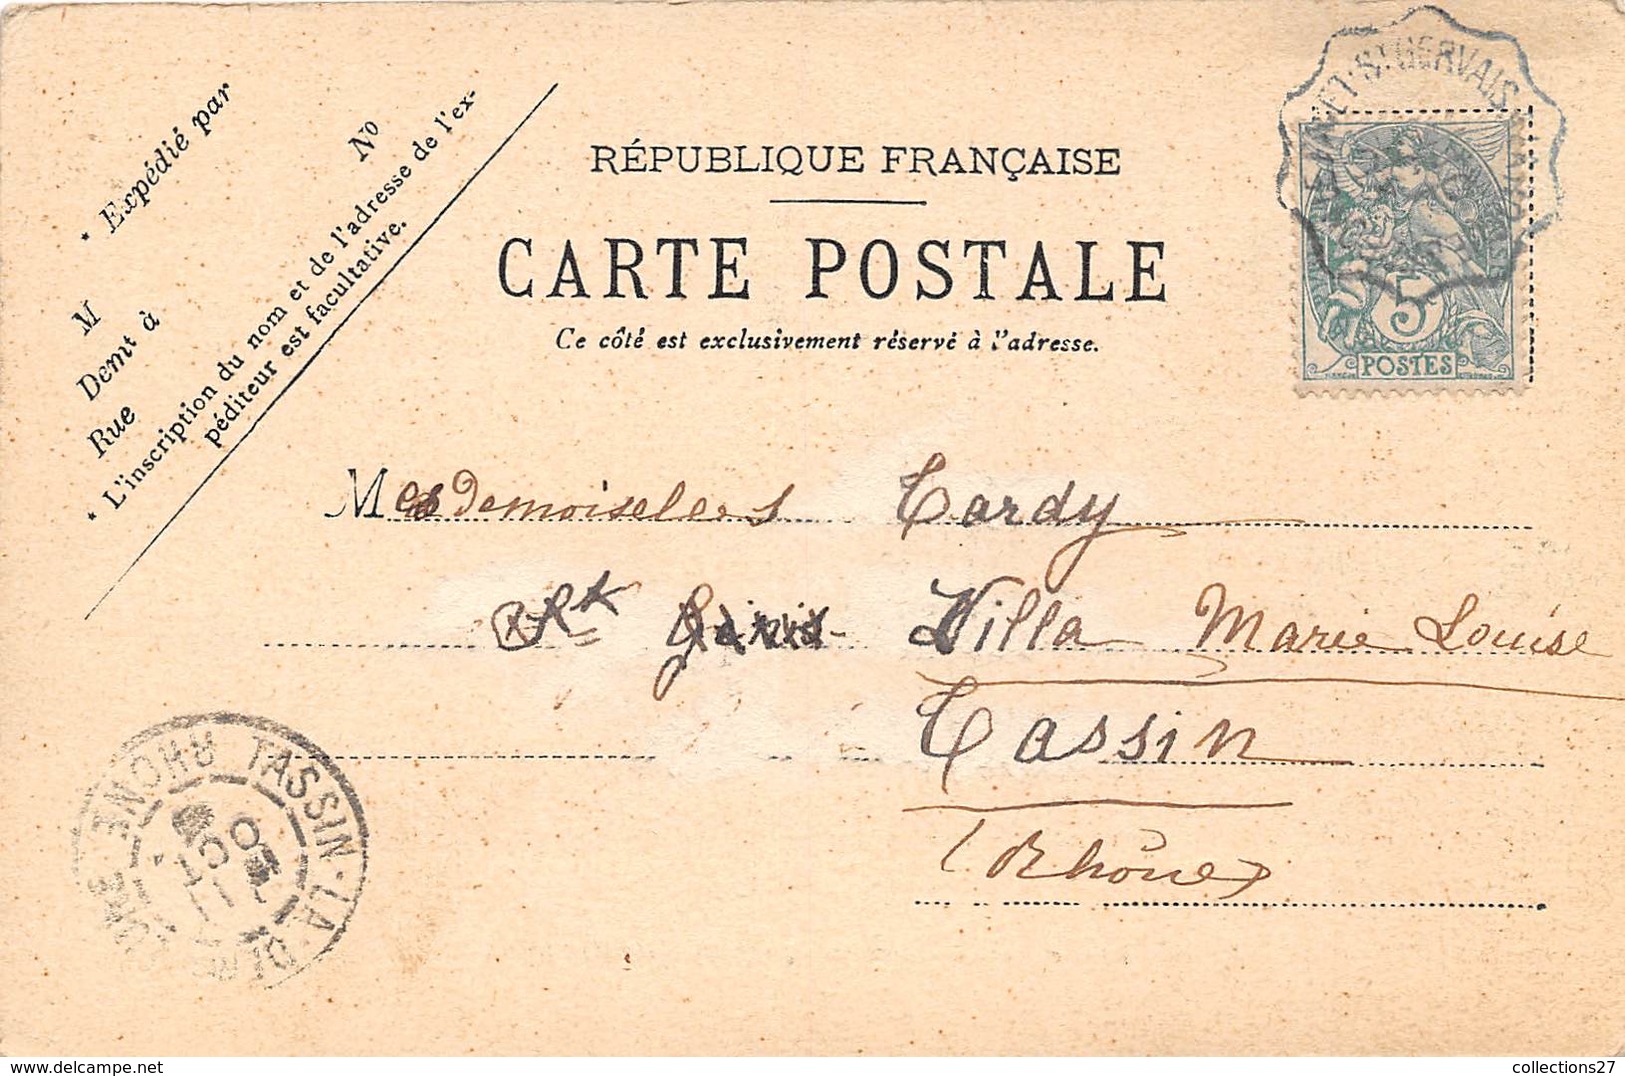 * Expédié par
Nº
M
Demt à
Rue
* L'inscription du nom et de l'adresse de l'ex-
péditeur est facultative.
RÉPUBLIQUE FRANÇAISE
CARTE POSTALE
Ce côté est exclusivement réservé à l'adresse.
ST GERVAIS
5
POSTES
Mesdemoiselles Tardy
Villa Marie Louise
Tassin
(Rhône)
TASSIN-LA-DEMI RHONE
collections27